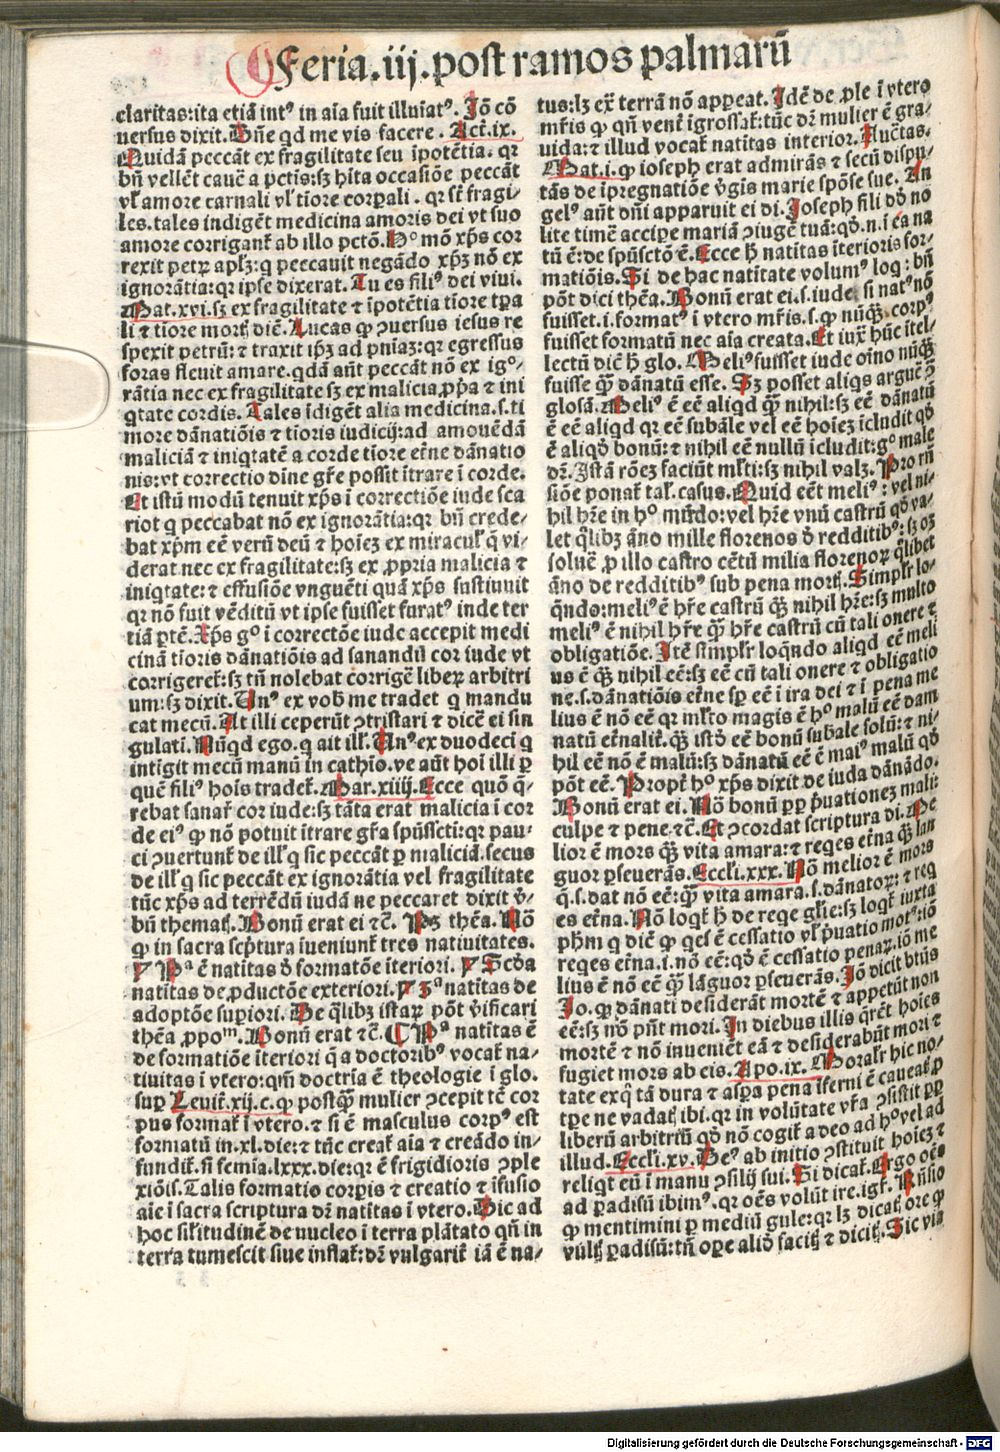 Feria.iij.post ramos palmarū
claritas:ita etiā intꝰ in aīa fuit illuīatꝰ. Iō cō
uersus dixit. Dñe qd me vis facere. Act̄.ix.
Quidā peccāt ex fragilitate seu īpotētia. qꝛ
bñ vellēt cauē a pctīs:sꝫ hīta occasiōe peccāt
vl̄ amore carnali vl̄ tiore corꝑali. qꝛ sēt fragi⸗
les. tales indigēt medicina amoris dei vt suo
amore corrigant̄ ab illo pctō. Hº mō xp̄s cor
rexit petrꝫ apl̄ꝫ:q peccauit negādo xp̄ꝫ nō ex
ignorātia:qꝛ ipse dixerat. Tu es filiꝰ dei viui.
Mat.xvi.sꝫ ex fragilitate ⁊ īpotētia tiore tꝑa
li ⁊ tiore mortꝭ diē. Lucas ꝙ ꝯuersus iesus re
spexit petrū: ⁊ traxit ipꝫ ad pn̄iaꝫ:qꝛ egressus
foras fleuit amare. qdā aūt peccāt nō ex igº⸗
rātia nec ex fragilitate sꝫ ex malicia ꝓpͥa ⁊ ini
qtate cordis. Tales īdigēt alia medicina.s.ti
more dānatiōis ⁊ tīoris iudicij:ad amouēdā
maliciā ⁊ iniqtatē a corde tīore et̄ne dānatio
nis:vt correctio dīne gr̄e possit ītrare ī corde.
Et istū modū tenuit xp̄s ī correctiōe iude sca
riot q peccabat nō ex ignorātia:qꝛ bñ crede⸗
bat xp̄m eē verū deū ⁊ hoīeꝫ ex miracul̄ q̄ vi⸗
derat nec ex fragilitate:sꝫ ex ꝓpria malicia ⁊
iniqtate: ⁊ effusiōe vnguēti quā xp̄s sustinuit
qꝛ nō fuit vēditū vt ipse fuisset furatꝰ inde ter
tiā ꝑtē. Xp̄s gº ī correctōe iude accepit medi
cinā tīoris dānatiōis ad sanandū cor iude vt
corrigeret̄:sꝫ tñ nolebat corrigē liberꝫ arbitri
um:sꝫ dixit. Unꝰ ex vob̄ me tradet q mandu
cat mecū. At illi ceperūt ꝯtristari ⁊ dicē ei sin
gulati. Nūqd ego. q ait ill̄. Unꝰ ex duodecī q
intīgit mecū manū in cathīo. ve aūt hoī illi ꝑ
quē filiꝰ hoīs tradet̄. Mar.xiiij. Ecce quō q̄⸗
rebat sanar̄ cor iude:sꝫ tāta erat malicia ī cor
de eiꝰ ꝙ nō potuit ītrare gr̄a spūssctī:qꝛ pau⸗
ci ꝯuertunt̄ de ill̄ q sic peccāt ꝑ maliciā. secus
de ill̄ q sic peccāt ex ignorātia vel fragilitate
tūc xp̄s ad terrēdū iudā ne peccaret dixit v̓⸗
bū themat̄. Bonū erat ei ⁊c̄. Pꝫ thēa. Nō
ꝙ in sacra scͥptura īueniunt̄ tres natiuitates.
Pª ē natītas d̓ formatōe īteriori. Scd̓a
natītas de ꝓductōe exteriori. 3ª natītas de
adoptōe supiori. De q̄libꝫ istarꝫ pōt v̓ificari
thēa ꝓpoᵐ. Bonū erat ⁊c̄. Pª natītas ē
de formatiōe īteriori q̄ a doctoribꝰ vocat̄ na⸗
tiuitas ī vtero:qm̄ doctrīa ē theologie ī glo.
suꝑ Leuit̄.xij.c.ꝙ postq̄ꝫ mulier ꝯcepit tē cor
pus format̄ ī vtero. ⁊ si ē masculus corpꝰ est
formatū in.xl.die: ⁊ tūc creat̄ aīa ⁊ creādo in⸗
fundit̄. si femīa.lxxx.die:qꝛ ē frigidioris ꝯple
xiōis. Talis formatio corꝑis ⁊ creatio ⁊ īfusio
aīe ī sacra scriptura dr̄ natītas ī vtero. Sic ad
hoc sil̄itudinē de nucleo ī terra plātato qñ in
terra tumescit siue inflat̄:dr̄ vulgarit̄ iā ē na⸗
tus:lꝫ ex̄ terrā nō appeat. Idē de ꝓle ī vtero
mr̄is ꝙ qñ vent̄ īgrossat̄:tūc dr̄ mulier ē gra⸗
uida: ⁊ illud vocat̄ natītas interior. Auct̄as.
Mat.i.ꝙ ioseph erat admirās ⁊ secū dispu⸗
tās de īpregnatiōe v̓gīs marie spōse sue. An
gelꝰ aūt dñi apparuit ei di. Joseph fili dd̓ no
lite timē accipe mariā ꝯiugē tuā:qd̓.n.ī ea na
tū ē:de spūsctō ē. Ecce h̄ natītas īterioris for⸗
matiōis. Si de hac natītate volumꝰ loq̄: bñ
pōt dici thēa. Bonū erat ei.s.iude. si natꝰ nō
fuisset.i.formatꝰ ī vtero mr̄is.s.ꝙ nūq̄ꝫ corpꝰ
fuisset formatū nec aīa creata. Et iux̄ hūc ītel⸗
lectū dic̄ h̄ glo. Meliꝰ fuisset iude oīno nūq̄ꝫ
fuisse q̄ꝫ dānatū esse. Sꝫ posset aliqs arguē ꝯ
glosā. Meliꝰ ē eē aliqd q̄ꝫ nihil:sꝫ eē dānatū
ē eē aliqd qꝛ eē subāle vel eē hoīeꝫ īcludit qd̓
ē aliqd̓ bonū: ⁊ nihil eē nullū īcludit:gº male
dr̄. Istā rōeꝫ faciūt ml̄ti:sꝫ nihil valꝫ. Pro rñ
siōe ponat̄ tal̄ casus. Quid eēt meliꝰ: vel ni⸗
hil hr̄e in hº mūdo:vel hr̄e vnū castrū qd̓ va⸗
let q̄libꝫ āno mille florenos d̓ redditibꝰ:sꝫ oꝫ
soluē ꝓ illo castro cētū milia florenorꝫ q̄libet
āno de redditibꝰ sub pena mortꝭ. Simpl̄r lo⸗
q̄ndo:meliꝰ ē hr̄e castrū q̄ꝫ nihil hr̄e:sꝫ multo
meliꝰ ē nihil hr̄e q̄ꝫ hr̄e castrū cū tali onere ⁊
obligatiōe. Itē simpl̄r loq̄ndo aliqd eē meli
us ē q̄ꝫ nihil eē:sꝫ eē cū tali onere ⁊ obligatio
ne.s.dānatiōis et̄ne sꝑ eē ī ira dei ⁊ ī pena me
lius ē nō eē qꝛ ml̄to magis ē hº malū eē dam
natū et̄nalit̄. q̄ꝫ istd̓ eē bonū subale solū: ⁊ ni⸗
hil eē nō ē malū:sꝫ dānatū eē ē maiꝰ malū qd̓
pōt eē. Propt̄ hº xp̄s dixit de iuda dānādo.
Bonū erat ei. Nō bonū ꝑꝑ pͥuationeꝫ mali:
culpe ⁊ pene ⁊c̄. Et ꝯcordat scriptura di. Me
lior ē mors q̄ꝫ vita amara: ⁊ reqes et̄na q̄ꝫ lan
guor ꝑseuerās. Eccl̄i.xxx. Nō melior ē mors
q̄.s.dat nō eē:q̄ꝫ vita amara.s.dānatorꝫ: ⁊ req
es et̄na. Nō loqt̄ h̄ de reqe gl̄ie:sꝫ loqt̄ iuxta
ph̄m q dic̄ ꝙ qes ē cessatio vl̄ pͥuatio motꝰ:iō
reqes et̄na.i.nō eē:qd̓ ē cessatio penarꝫ.iō me
lius ē nō eē q̄ꝫ lāguor ꝑseuerās. Iō dicit btūs
Jo.ꝙ dānati desiderāt mortē ⁊ appetūt non
eē:sꝫ nō pñt mori. In diebus illis q̄rēt hoīes
mortē ⁊ nō inueniēt eā ⁊ desiderabūt mori ⁊
fugiet mors ab eis. Apo.ix. Moral̄r hic no⸗
tate exq̄ tā dura ⁊ asꝑa pena īferni ē caueat̄ꝭ ꝑ
tꝑe ne vadatꝭ ibi.qꝛ in volūtate vr̄a ꝯsistit ꝑꝑ
liberū arbitriū qd̓ nō cogit̄ a deo ad hº vel ad
illud. Eccl̄i.xv. Deꝰ ab initio ꝯstituit hoīeꝫ ⁊
reliqt eū ī manu ꝯsilij sui. Si dicat̄. Ergo oēs
ad padisū ibimꝰ.qꝛ oēs volūt ire.igt̄. Rñsio
ꝙ mentimini ꝑ mediū gule:qꝛ lꝫ dicatꝭ ore ꝙ
vultꝭ padisū:tñ oꝑe alid̓ facitꝭ ⁊ dicitꝭ. Sic via
Digitalisierung gefördert durch die Deutsche Forschungsgemeinschaft - DFG